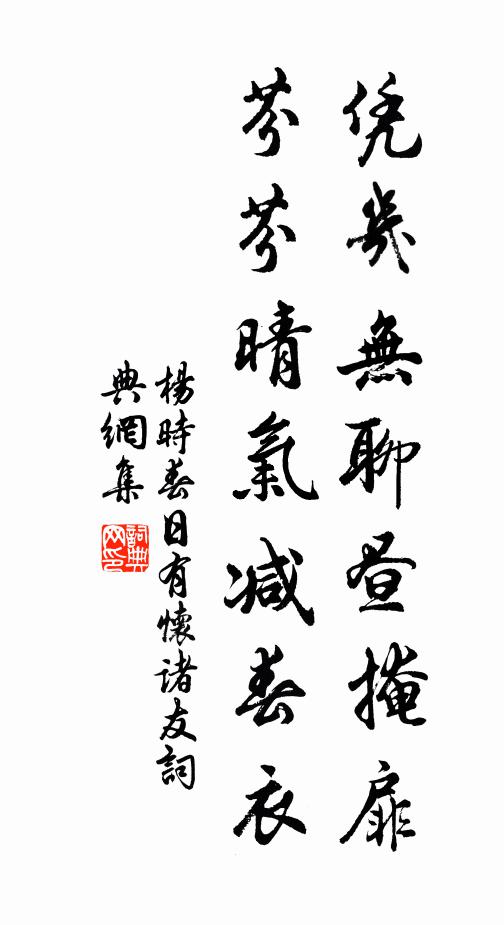 凭几無聊晝掩扉
芬芬晴氣減春衣
楊時春日有懷諸友詞
典網集
詞典
网印